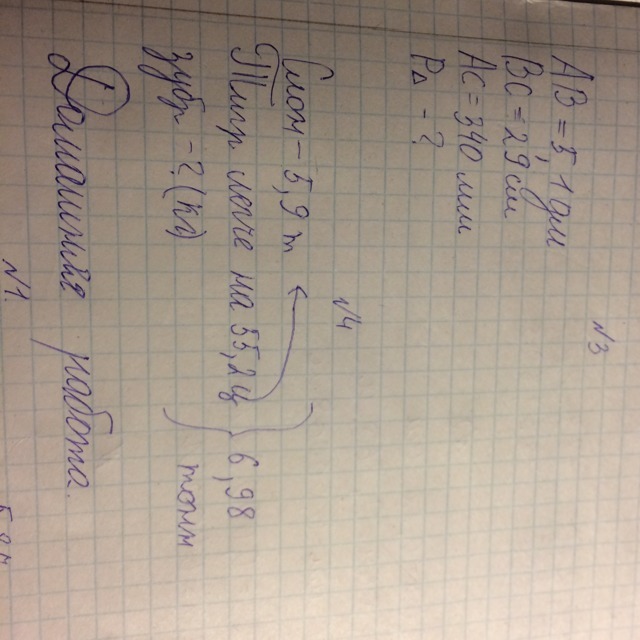 №3
AB = 5,1 дм
BC = 29 см
AC = 340 мм
P△ - ?
№4
Слон - 5,9 т
Тигр легче на 55,2 ц 6,98
зубр - ? (кг) тонн
Домашняя работа
№1